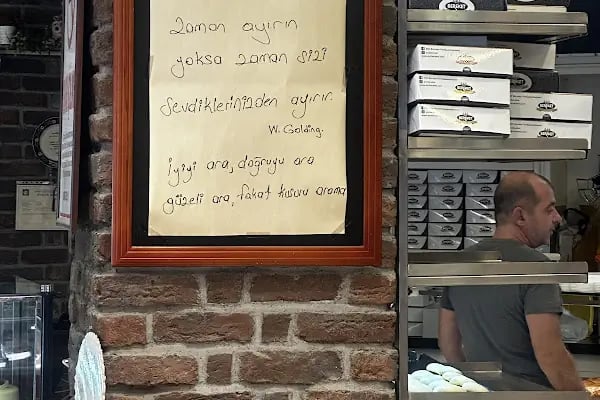 zaman ayırın
yoksa zaman sizi
sevdiklerinizden ayırır.
W. Golding.
İyiyi ara, doğruyu ara
güzeli ara, fakat kusuru arama